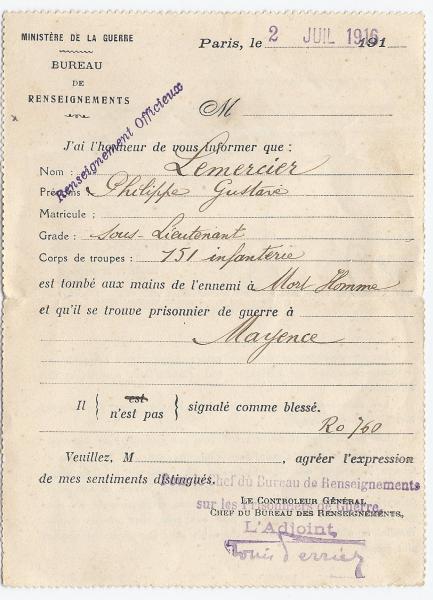 MINISTÈRE DE LA GUERRE
BUREAU
DE
RENSEIGNEMENTS
Paris, le 2 JUIL 1916 191
Renseignement Officieux
M
J'ai l'honneur de vous informer que :
Nom : Lemercier
Prénoms : Philippe Gustave
Matricule :
Grade : Sous-Lieutenant
Corps de troupes : 151 infanterie
est tombé aux mains de l'ennemi à Mort Homme
et qu'il se trouve prisonnier de guerre à
Mayence
Il { est
n'est pas } signalé comme blessé.
Ro 760
Veuillez, M , agréer l'expression
de mes sentiments distingués.
Chef du Bureau de Renseignements
sur les Prisonniers de Guerre,
LE CONTROLEUR GÉNÉRAL
CHEF DU BUREAU DES RENSEIGNEMENTS,
L'Adjoint,
Louis